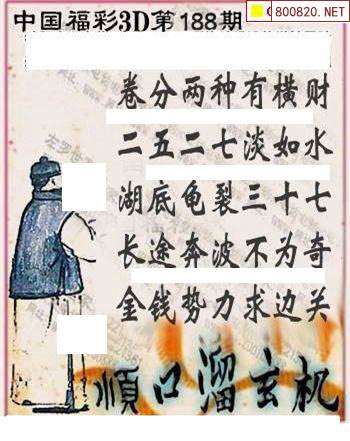 中国福彩3D第188期
800820.NET
卷分两种有横财
二五二七淡如水
湖底龟裂三十七
长途奔波不为奇
金钱势力求边关
顺口溜玄机